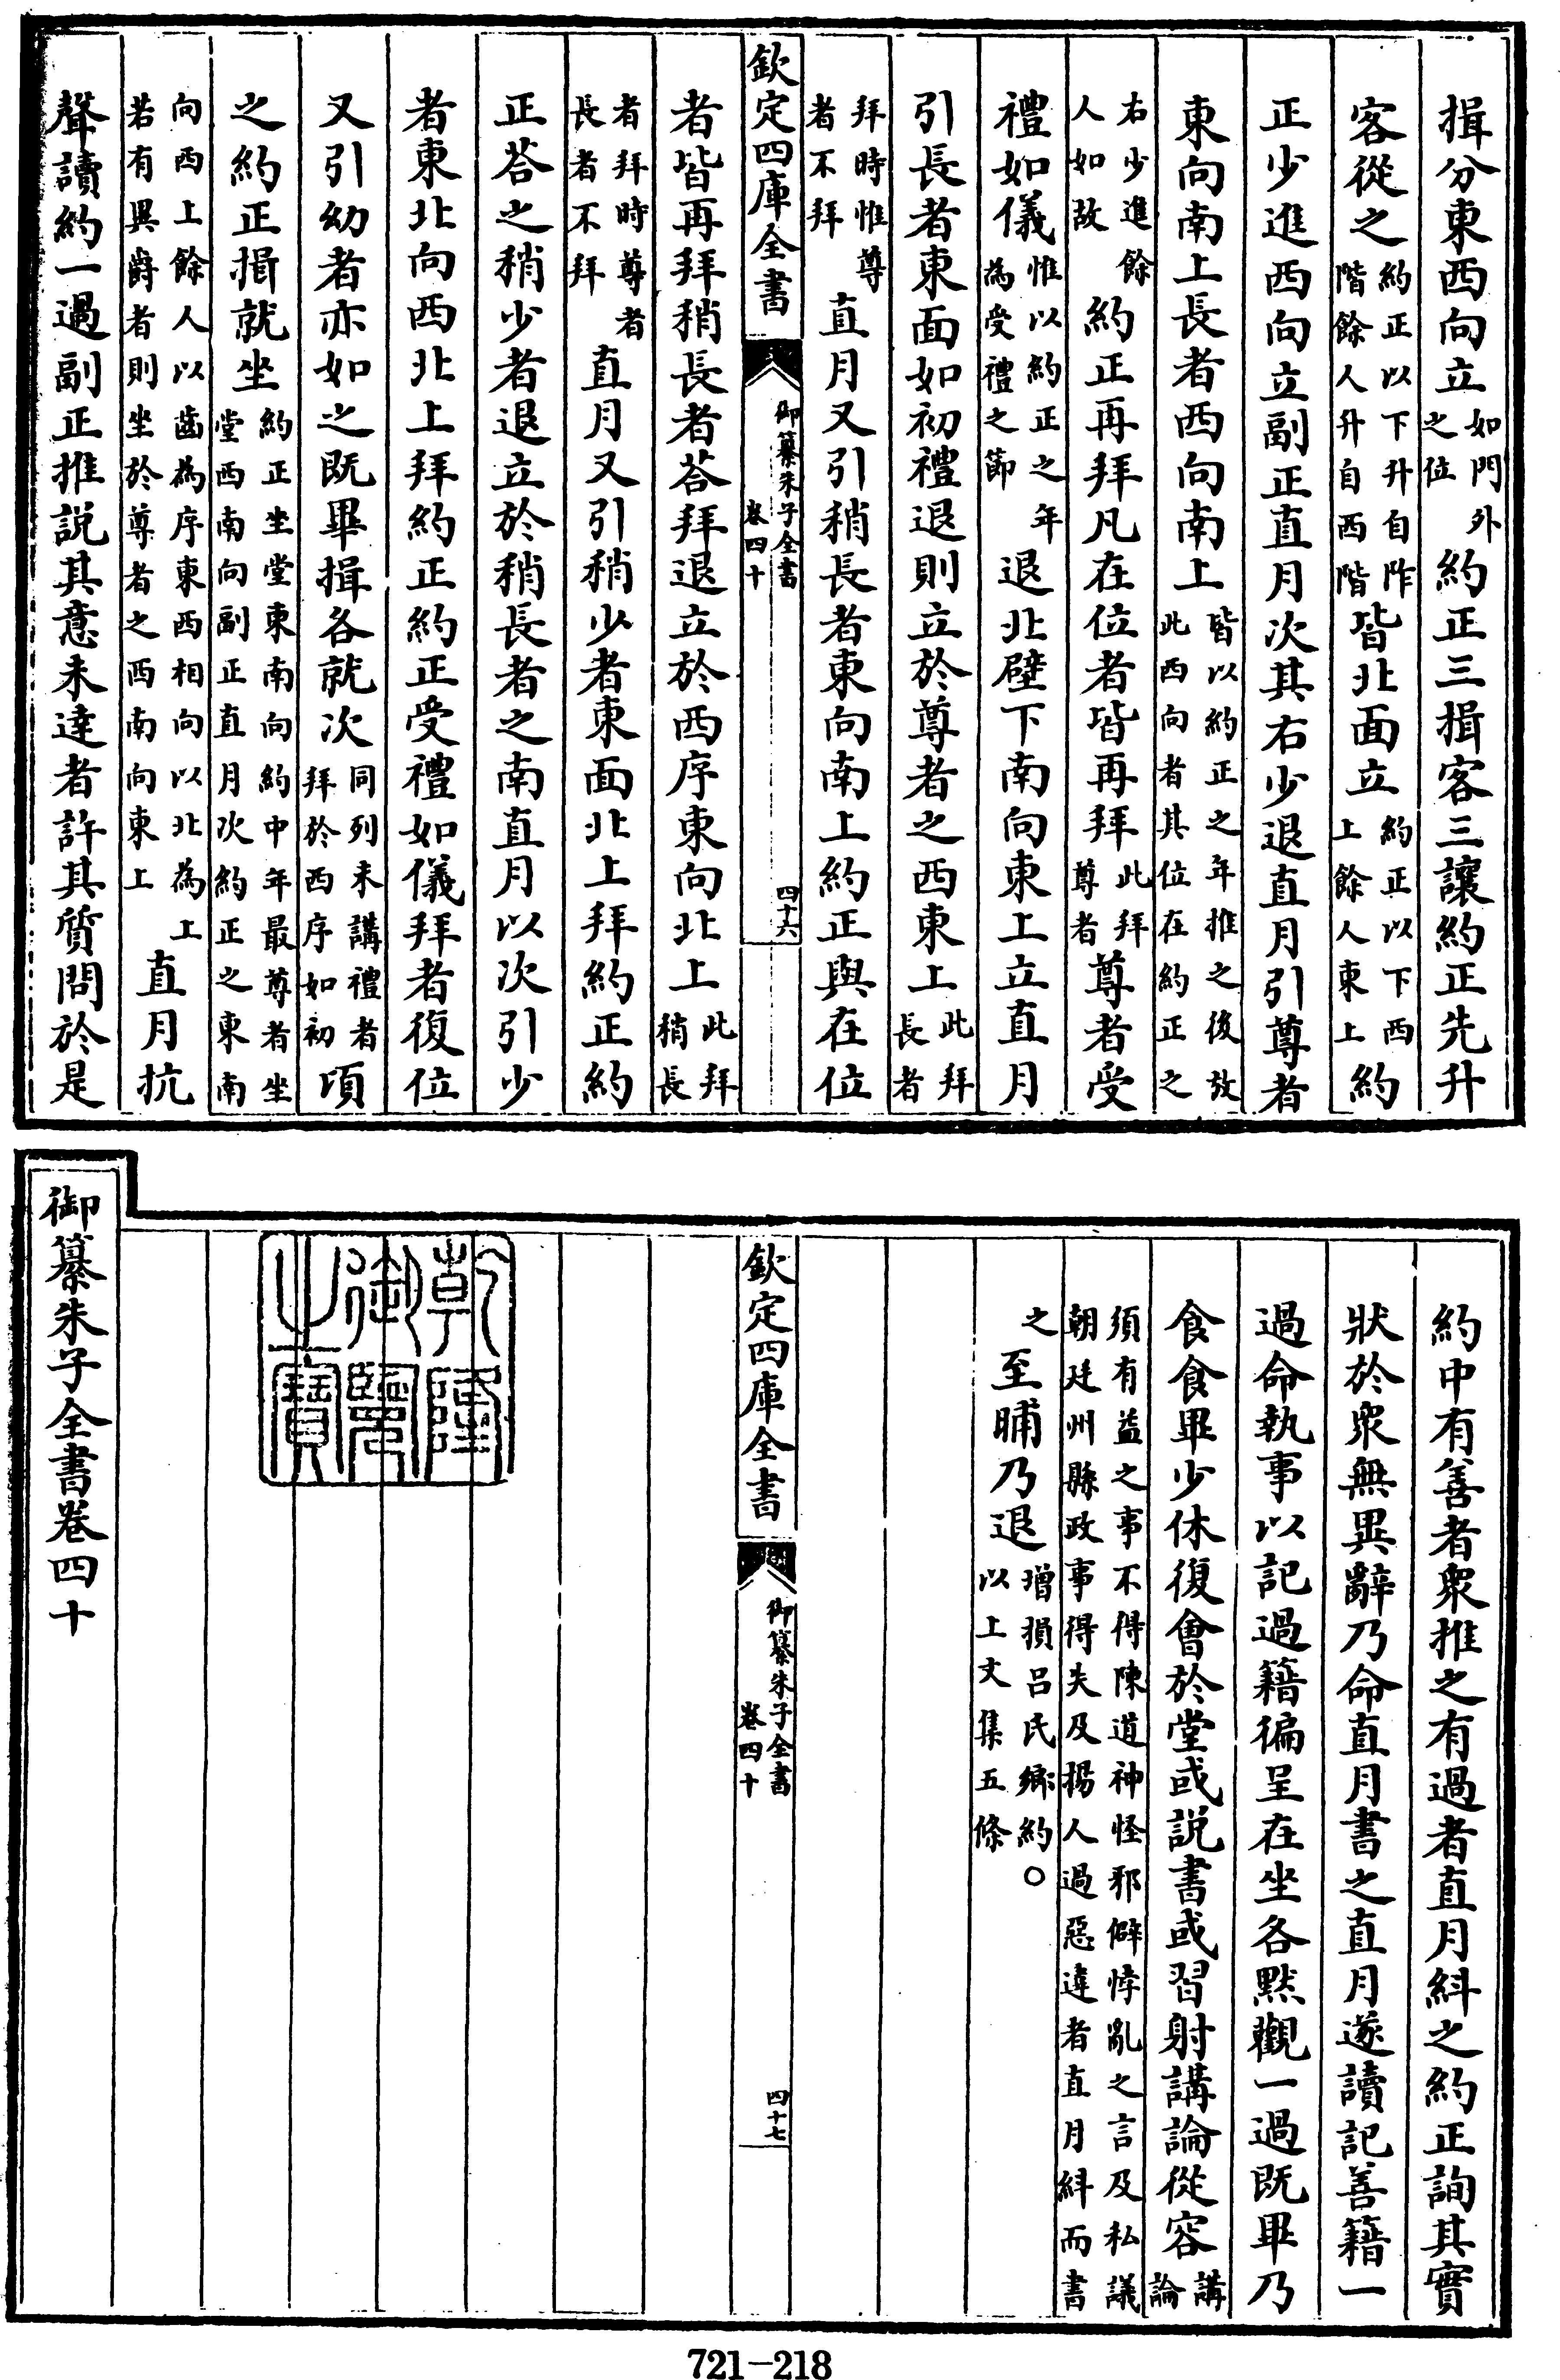 揖分東西向立如門外之位約正三揖客三讓約正先升
客從之約正以下升自阼階餘人升自西階皆北面立約正以下西上餘人東上約
正少進西向立副正直月次其右少退直月引尊者
東向南上長者西向南上皆以約正之年推之後放此西向者其位在約正之
右少進餘人如故約正再拜凡在位者皆再拜此拜尊者尊者受
禮如儀惟以約正之年為受禮之節退北壁下南向東上立直月
引長者東面如初禮退則立於尊者之西東上此拜長者
拜時惟尊者不拜直月又引稍長者東向南上約正與在位
欽定四庫全書
御纂朱子全書
卷四十
四十六
者皆再拜稍長者荅拜退立於西序東向北上此拜稍長
者拜時尊者長者不拜直月又引稍少者東面北上拜約正約
正荅之稍少者退立於稍長者之南直月以次引少
者東北向西北上拜約正約正受禮如儀拜者復位
又引幼者亦如之既畢揖各就次同列未講禮者拜於西序如初頃
之約正揖就坐約正坐堂東南向約中年最尊者坐堂西南向副正直月次約正之東南
向西上餘人以齒為序東西相向以北為上若有異爵者則坐於尊者之西南向東上直月抗
聲讀約一過副正推說其意未達者許其質問於是
約中有善者衆推之有過者直月糾之約正詢其實
狀於衆無異辭乃命直月書之直月遂讀記善籍一
過命執事以記過籍徧呈在坐各默觀一過既畢乃
食食畢少休復會於堂或說書或習射講論從容講論
須有益之事不得陳道神怪邪僻悖亂之言及私議朝廷州縣政事得失及揚人過惡違者直月糾而書
之至晡乃退增損呂氏鄉約○以上文集五條
欽定四庫全書
御纂朱子全書
卷四十
四十七
乾隆御覽之寶
御纂朱子全書卷四十
721-218